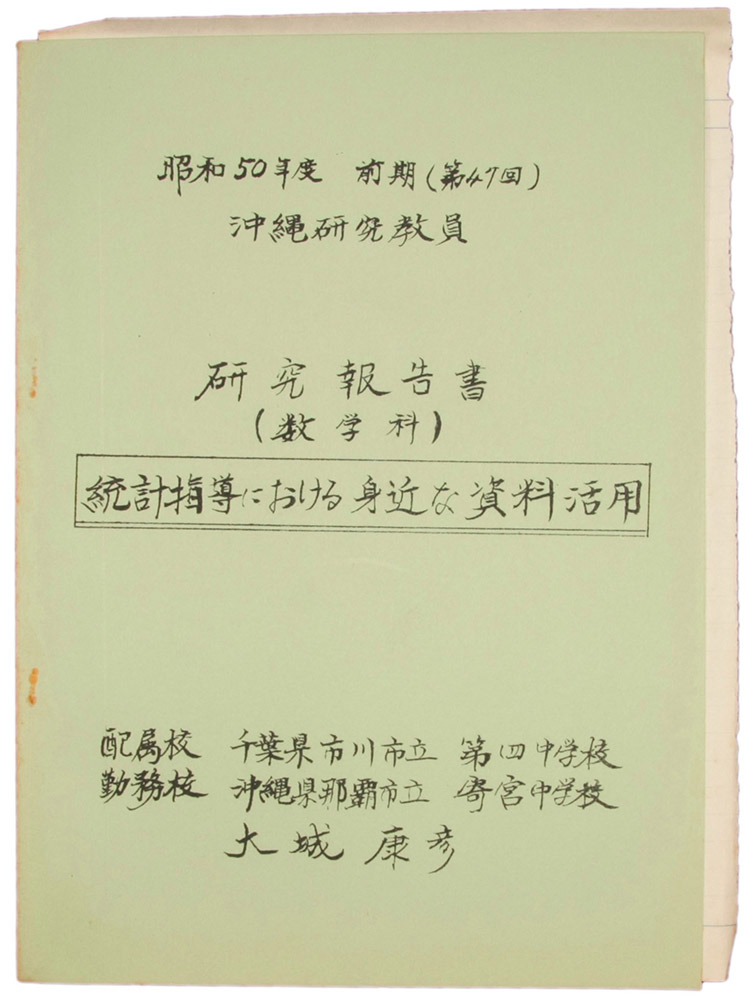 昭和50年度 前期(第47回)
沖縄研究教員
研究報告書
(数学科)
統計指導における身近な資料活用
配属校 千葉県市川市立 第四中学校
勤務校 沖縄県那覇市立 寄宮中学校
大城 康彦